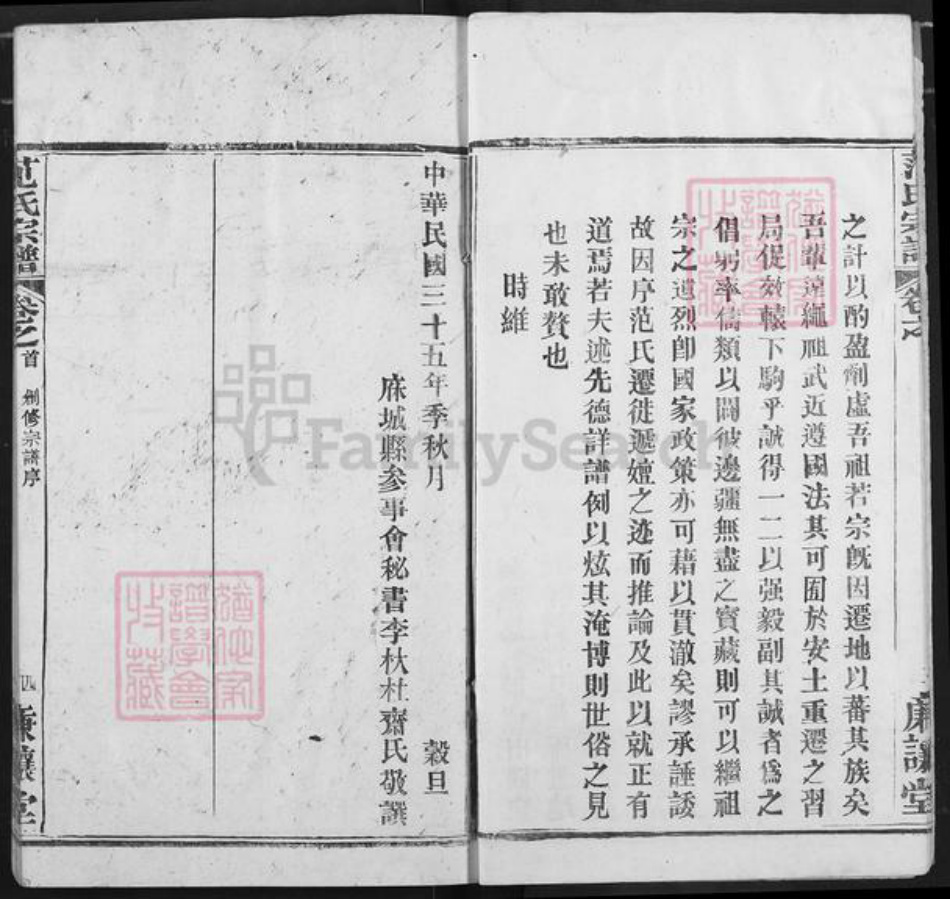 范氏宗譜 卷之
廉讓堂
之計以酌盈劑虛吾祖若宗旣因遷地以蕃其族矣
吾輩遠繩祖武近遵國法其可囿於安土重遷之習
局促效轅下駒乎誠得一二以强毅副其誠者爲之
倡躬率儔類以闢彼邊疆無盡之寶藏則可以繼祖
宗之遺烈卽國家政策亦可藉以貫澈矣謬承諈諉
故因序范氏遷徙遞嬗之迹而推論及此以就正有
道焉若夫述先德詳譜例以炫其淹博則世俗之見
也未敢贅也
時維
中華民國三十五年季秋月 穀旦
麻城縣参事會秘書李杕杜齋氏敬譔
范氏宗譜 卷之首 刱修宗譜序 四 廉讓堂
FamilySearch